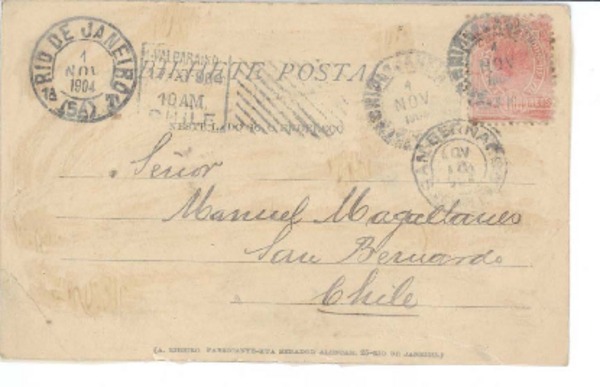 RIO DE JANEIRO
1
NOV
1904
18 (5A)
VALPARAISO
1904
10 AM.
CHILE
BILHETE POSTAL
1
NOV
1
NOV
SAN BERNARDO
NOV
Señor
Manuel Magallanes
San Bernardo
Chile
(A. RIBEIRO FABRICANTE-RUA SENADOR ALENCAR, 25-RIO DE JANEIRO.)